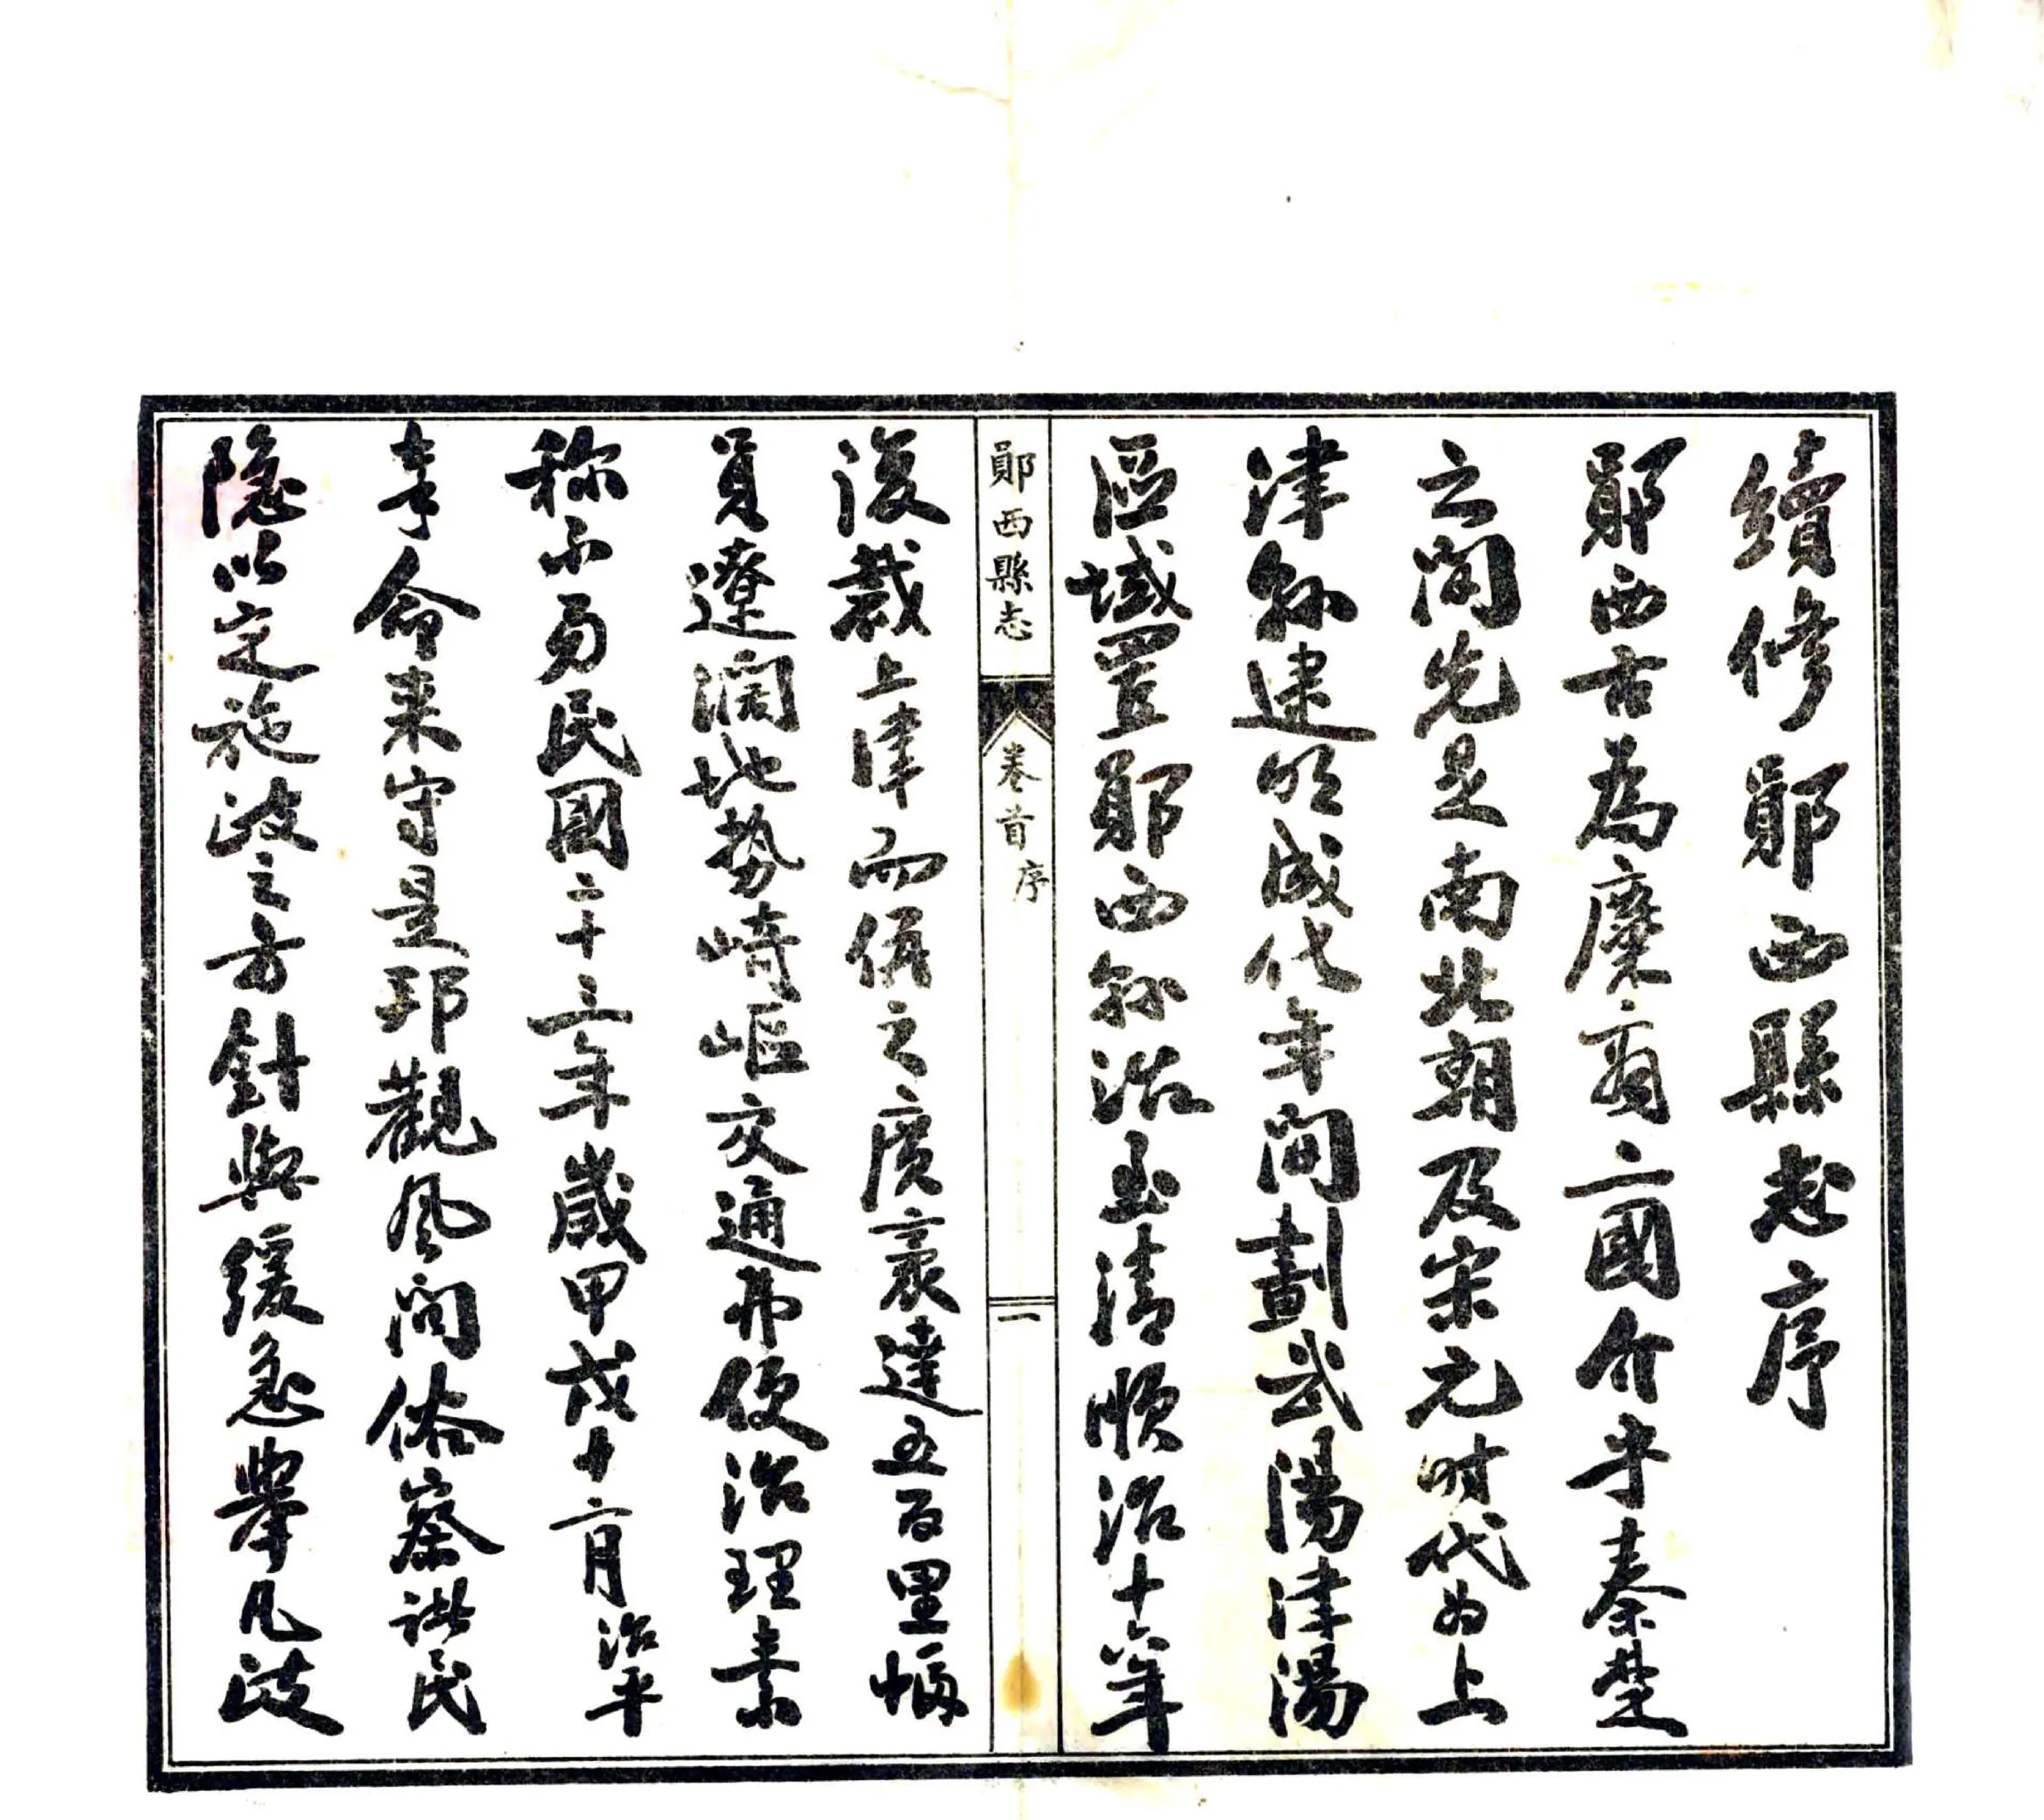 續修鄖西縣志序
鄖西古為麇商二國介乎秦楚
之間先是南北朝及宋元时代为上
津縣逮明成化年間劃武陽津陽
區域置鄖西縣治至清順治十六年
鄖西縣志
卷首
序
一
後裁上津而併之廣袤達五百里幅
員遼濶地势崎嶇交通弗便治理素
称不易民國二十三年歲甲戌十二月治平
奉命来守是邦觀風问俗察民
隐以定施政之方針與緩急舉凡政